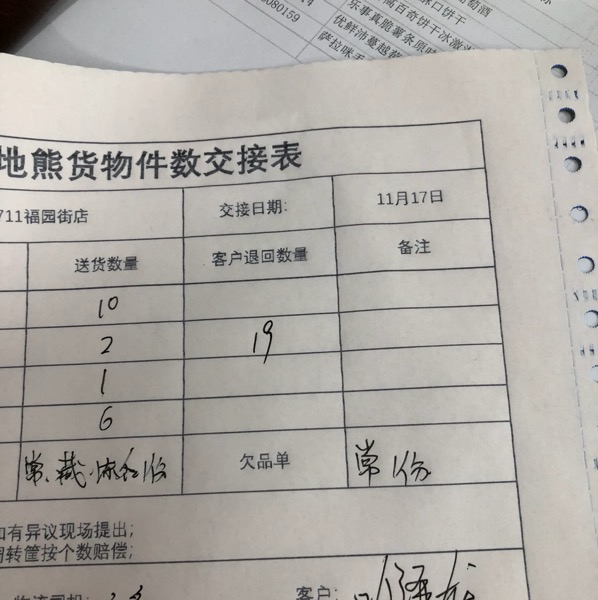 萄酒
味口饼干
高百奇饼干冰激
乐事真脆薯条原味
优鲜沛蔓越莓
萨拉咪
6080159
地熊货物件数交接表
711福园街店
交接日期:
11月17日
送货数量
客户退回数量
备注
10
2
19
1
6
欠品单
常 份
如有异议现场提出;
周转筐按个数赔偿;
物流司机:
客户: